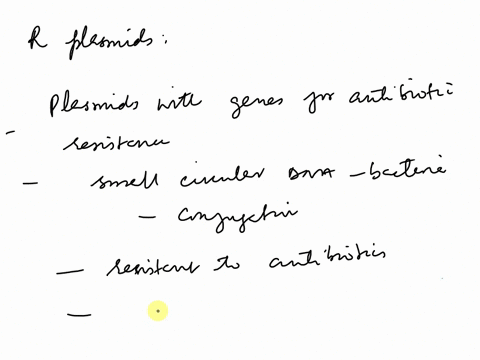 R plasmids:
Plasmids with genes for antibiotic
- resistance
- small circular DNA - bacteria
- conjugation
- resistant to antibiotics
-